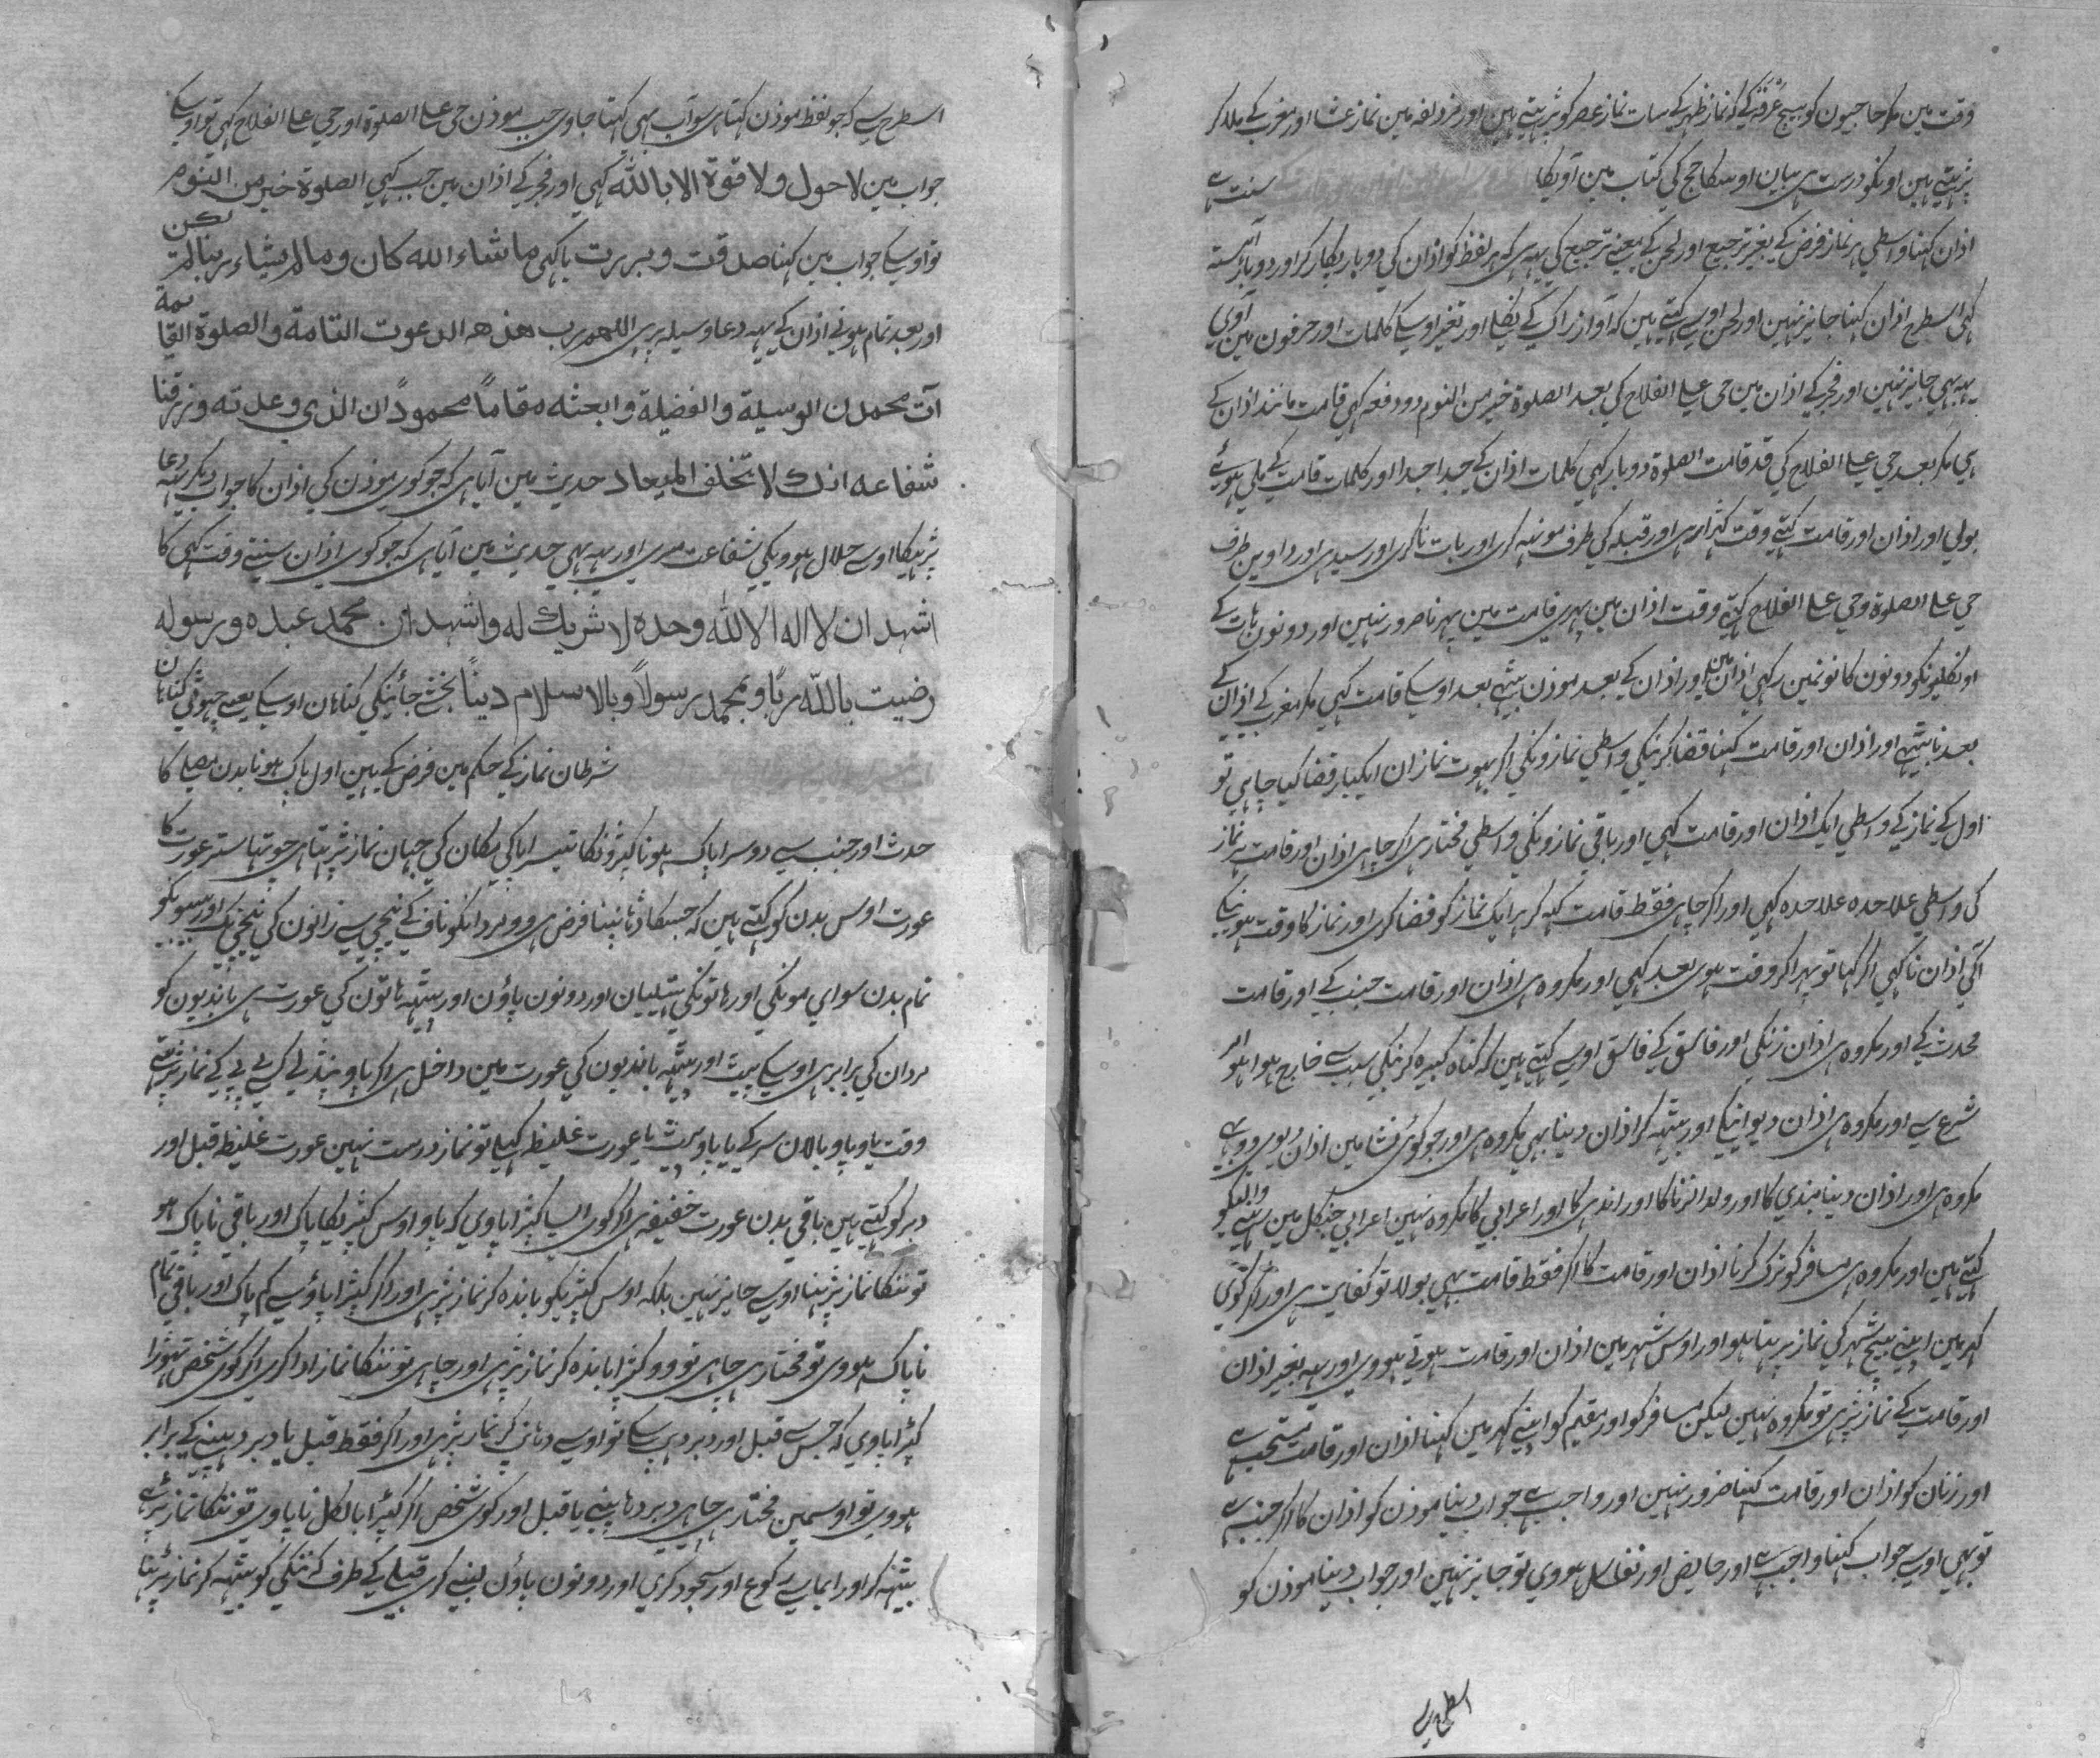 وقت مین مکر حاجیون کو بیچ عرفہ کے کہ نماز ظہر کے سات نماز عصر کو پڑہتے ہین اور مزدلفہ مین نماز عشا اور مغرب کے ملا کر
پڑہتے ہین اونکو درست ہی بیان اوسکا حج کی کتاب مین آویکا سنت ہے
اذان کہنا واسطی ہر نماز فرض کے بغیر ترجیع اور لحن کے یعنے ترجیع کی یہہ ہی کہ ہر لفظ کو اذان کی دوبار پکار کر اور دوبار آہستہ
کہی اسطرح اذان کہنا جایز نہین اور لحن اوسے کہتے ہین کہ آواز راک کے نکلے اور تغیر اوسکے کلمات اور حرفون مین آوی
یہہ بہی جایز نہین اور فجر کے اذان مین حی علی الفلاح کی بعد الصلوۃ خیر من النوم دو دفعہ کہی قامت مانند اذان کے
ہی مکر بعد حی علی الفلاح کی قد قامت الصلوۃ دوبار کہی کلمات اذان کے جدا جدا اور کلمات قامت کے ملی ہوئے
بولی اور اذان اور قامت کہتے وقت کہڑا رہی اور قبلہ کی طرف مونہہ کری اور بات ناکری اور سیدی اور داوین طرف
حی علی الصلوۃ و حی علی الفلاح کہتے وقت اذان مین پہری قامت مین پہرنا ضرور نہین اور دونون ہات کے
اونکلیونکو دونون کانونمین رکہی اذان مین اور اذان کے بعد موذن بیٹہے بعد اوسکے قامت کہی مکر مغرب کے اذان کے
بعد نا بیٹہے اور اذان اور قامت کہنا قضا کرنیکی واسطی نمازونکی اکر بہوت نمازان ایکبار قضا کیا چاہی تو
اول کے نماز کے واسطی ایک اذان اور قامت کہی اور باقی نمازونکی واسطی مختار ہی اکر چاہی اذان اور قامت ہر نماز
کی واسطی علاحدہ علاحدہ کہی اور اکر چاہی فقط قامت کہہ کر ہر ایک نماز کو قضا کری اور نماز کا وقت ہونیکے
آکی اذان نا کہی اکر کہا تو پہر اکر وقت ہوی بعد کہی اور مکروہ ہی اذان اور قامت جنب کے اور قامت
محدث کے اور مکروہ ہی اذان زنکی اور فاسق کے فاسق اوسے کہتے ہین کہ کناہ کبیرہ کرنیکی سبب سے خارج ہوا ہو امر
شرع سے اور مکروہ ہی اذان دیوانیکے اور بیٹہہ کر اذان دینا بہی مکروہ ہی اور جو کوئی نشا مین اذان دیوی وو بہی
مکروہ ہی اور اذان دینا بندی کا اور ولد الزنا کا اور اندی کا اور اعرابی کا مکروہ نہین اعرابی جنکل مین رہنے والیکو
کہتے ہین اور مکروہ ہی مسافر کو ترک کرنا اذان اور قامت کا اکر فقط قامت بہی بولا تو کفایت ہی اور اکر کوئی
کہر مین اپنے بیچ شہر کی نماز پڑہتا ہو اور اوس شہر مین اذان اور قامت ہوتی ہووی اور یہہ بغیر اذان
اور قامت کے نماز پڑہی تو مکروہ نہین لیکن مسافر کو اور مقیم کو اپنے کہر مین کہنا اذان اور قامت مستحب ہے
اور زنان کو اذان اور قامت کہنا ضرور نہین اور واجب ہے جواب دینا موذن کو اذان کا اکر جنب ہے
تو بہی اوسے جواب کہنا واجب ہے اور حایض اور نفاس ہووی تو جایز نہین اور جواب دینا موذن کو
اسطرح سے
اسطرح سے کہ جو لفظ موذن کہتا ہی سو آپ بہی کہتا جاوی جب موذن حی علی الصلوۃ اور حی علی الفلاح کہی تو اوسکے
جواب مین لا حول ولا قوۃ الا باللہ کہی اور فجر کے اذان مین جب کہی الصلوۃ خیر من النوم
تو اوسکے جواب مین کہنا صدقت و بررت یا کہی ما شاء اللہ کان وما لم یشاء ربنا لم یکن
اور بعد تمام ہونے اذان کے یہہ دعا وسیلہ پڑہی اللہم رب ہذہ الدعوت التامة والصلوة القائمة
آت محمدن الوسیلة والفضیلة وابعثہ مقاماً محموداً ن الذی وعدتہ وارزقنا
شفاعہ انک لا تخلف المیعاد حدیث مین آیا ہی کہ جو کوی موذن کی اذان کا جواب دیکر یہہ دعا
پڑہیکا اوسے حلال ہوویکی شفاعت مری اور یہہ بہی حدیث مین آیا ہی کہ جو کوی اذان سنتے وقت کہی کا
اشہد ان لا الہ الا اللہ وحدہ لا شریک لہ واشہد ان محمد عبدہ ورسولہ
رضیت باللہ ربًا وبمحمد رسولاً وبالاسلام دیناً بخشے جاٰئینکی کناہان اوسکے یعنے چہوٹی کناہان
شرطان نماز کے حکم مین فرض کے ہین اول پاک ہونا بدن مصلی کا
حدث اور جنب سے دوسرا پاک ہونا کپڑونکا تیسرا پاکی مکان کی جہان نماز پڑہتا ہی چوتہا ستر عورت کا
عورت اوس بدن کو کہتے ہین کہ جسکا ڈہانپنا فرض ہی وو مردانکو ناف کے نیچی سے زانون کی نیچی تک اور بیبونکو
تمام بدن سوای مونکی اور ہاتونکی ہتیلیان اور دونون پاؤن اور بیٹہہ ہاتون کی عورت ہی باندیون کو
مردان کی برابر ہی اوسکے پیٹ اور پیٹہہ باندیون کی عورت مین داخل ہی اکر پاو پنڈلی کسی بی بی کے نماز پڑہتے
وقت یا پاو بالان سر کے یا پاو پیٹ یا عورت غلیظ کہلے تو نماز درست نہین عورت غلیظ قبل اور
دبر کو کہتے ہین باقی بدن عورت خفیفہ ہی اکر کوی ایسا کپڑا پاوی کہ پاو اوس کپڑیکا پاک اور باقی ناپاک ہو
تو ننکا نماز پڑہنا اوسے جایز نہین بلکہ اوس کپڑیکو باندہ کر نماز پڑہی اور اکر کپڑا پاؤ سے کم پاک اور باقی تمام
ناپاک ہووی تو مختار ہی چاہی تو وو کپڑا باندہ کر نماز پڑہی اور چاہی تو ننکا نماز ادا کری اکر کوی شخص تہوڑا
کپڑا پاوی کہ جس سے قبل اور دبر دہپ سکے تو اوسے دہانپ کر نماز پڑہی اور اکر فقط قبل یا دبر دہپنے کے برابر
ہووی تو اوسمین مختار ہی چاہی دبر دہانپے یا قبل اور کوی شخص اکر کپڑا بالکل نا پاوی تو ننکا نماز پڑہے
بیٹہہ کر اور ایما سے رکوع اور سجود کری اور دونون پاؤن لنبے کری قبلے کے طرف کہ ننکی کو بیٹہہ کر نماز پڑہنا